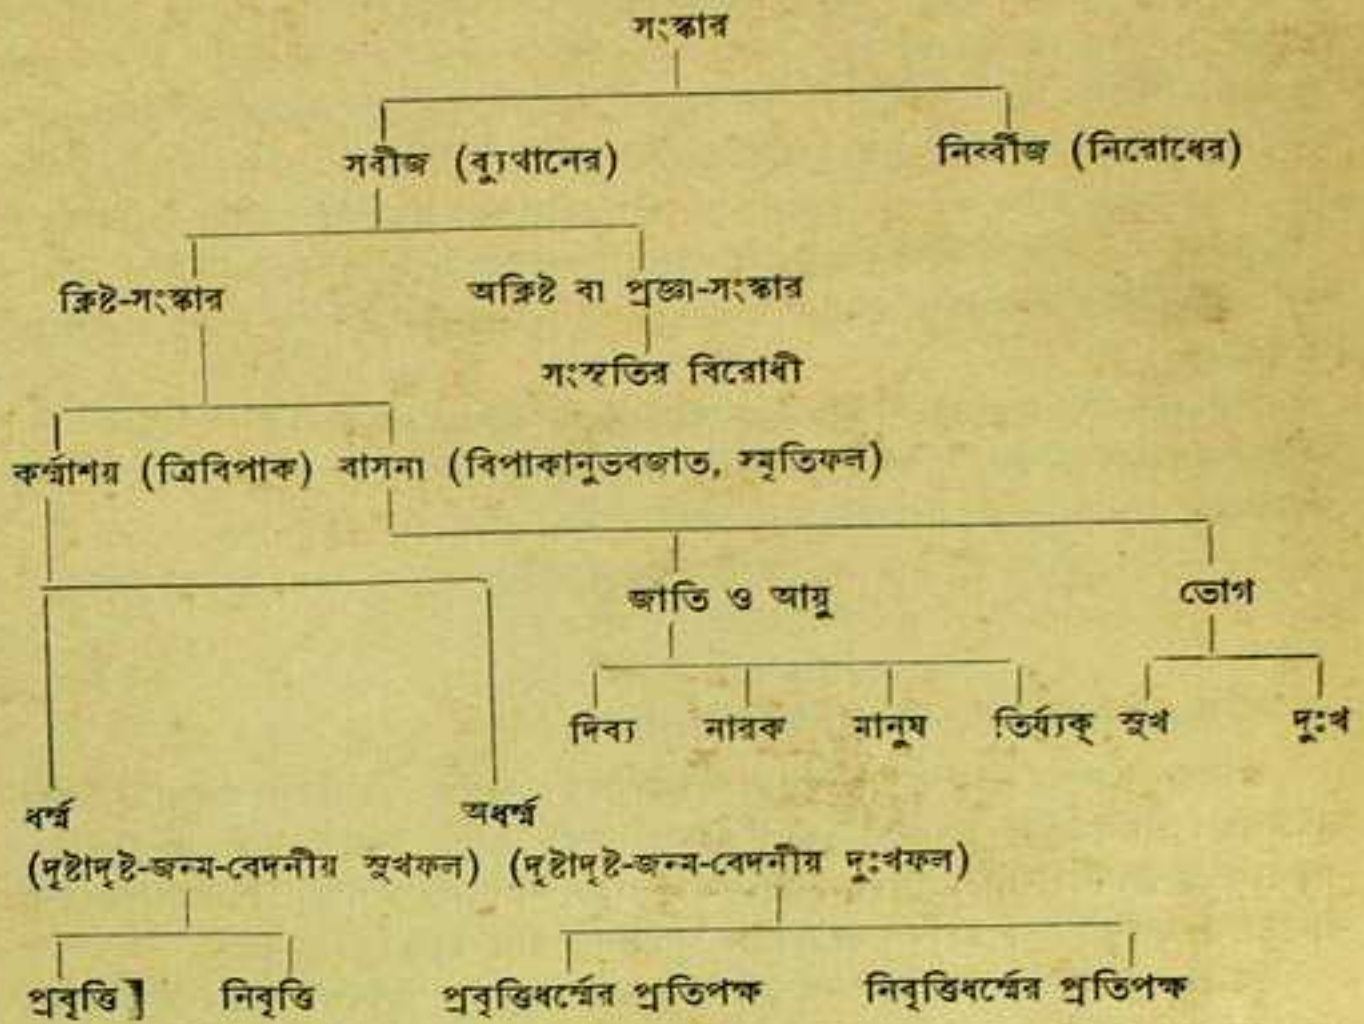 সংস্কার
সবীজ (ব্যুত্থানের) নির্ব্বীজ (নিরোধের)
ক্লিষ্ট-সংস্কার অক্লিষ্ট বা প্রজ্ঞা-সংস্কার
সংসৃতির বিরোধী
কর্ম্মাশয় (ত্রিবিপাক) বাসনা (বিপাকানুভবজাত, স্মৃতিফল)
জাতি ও আয়ু ভোগ
দিব্য নারক মানুষ তির্য্যক্ সুখ দুঃখ
ধর্ম্ম অধর্ম্ম
(দৃষ্টাদৃষ্ট-জন্ম-বেদনীয় সুখফল) (দৃষ্টাদৃষ্ট-জন্ম-বেদনীয় দুঃখফল)
প্রবৃত্তি] নিবৃত্তি প্রবৃত্তিধর্ম্মের প্রতিপক্ষ নিবৃত্তিধর্ম্মের প্রতিপক্ষ